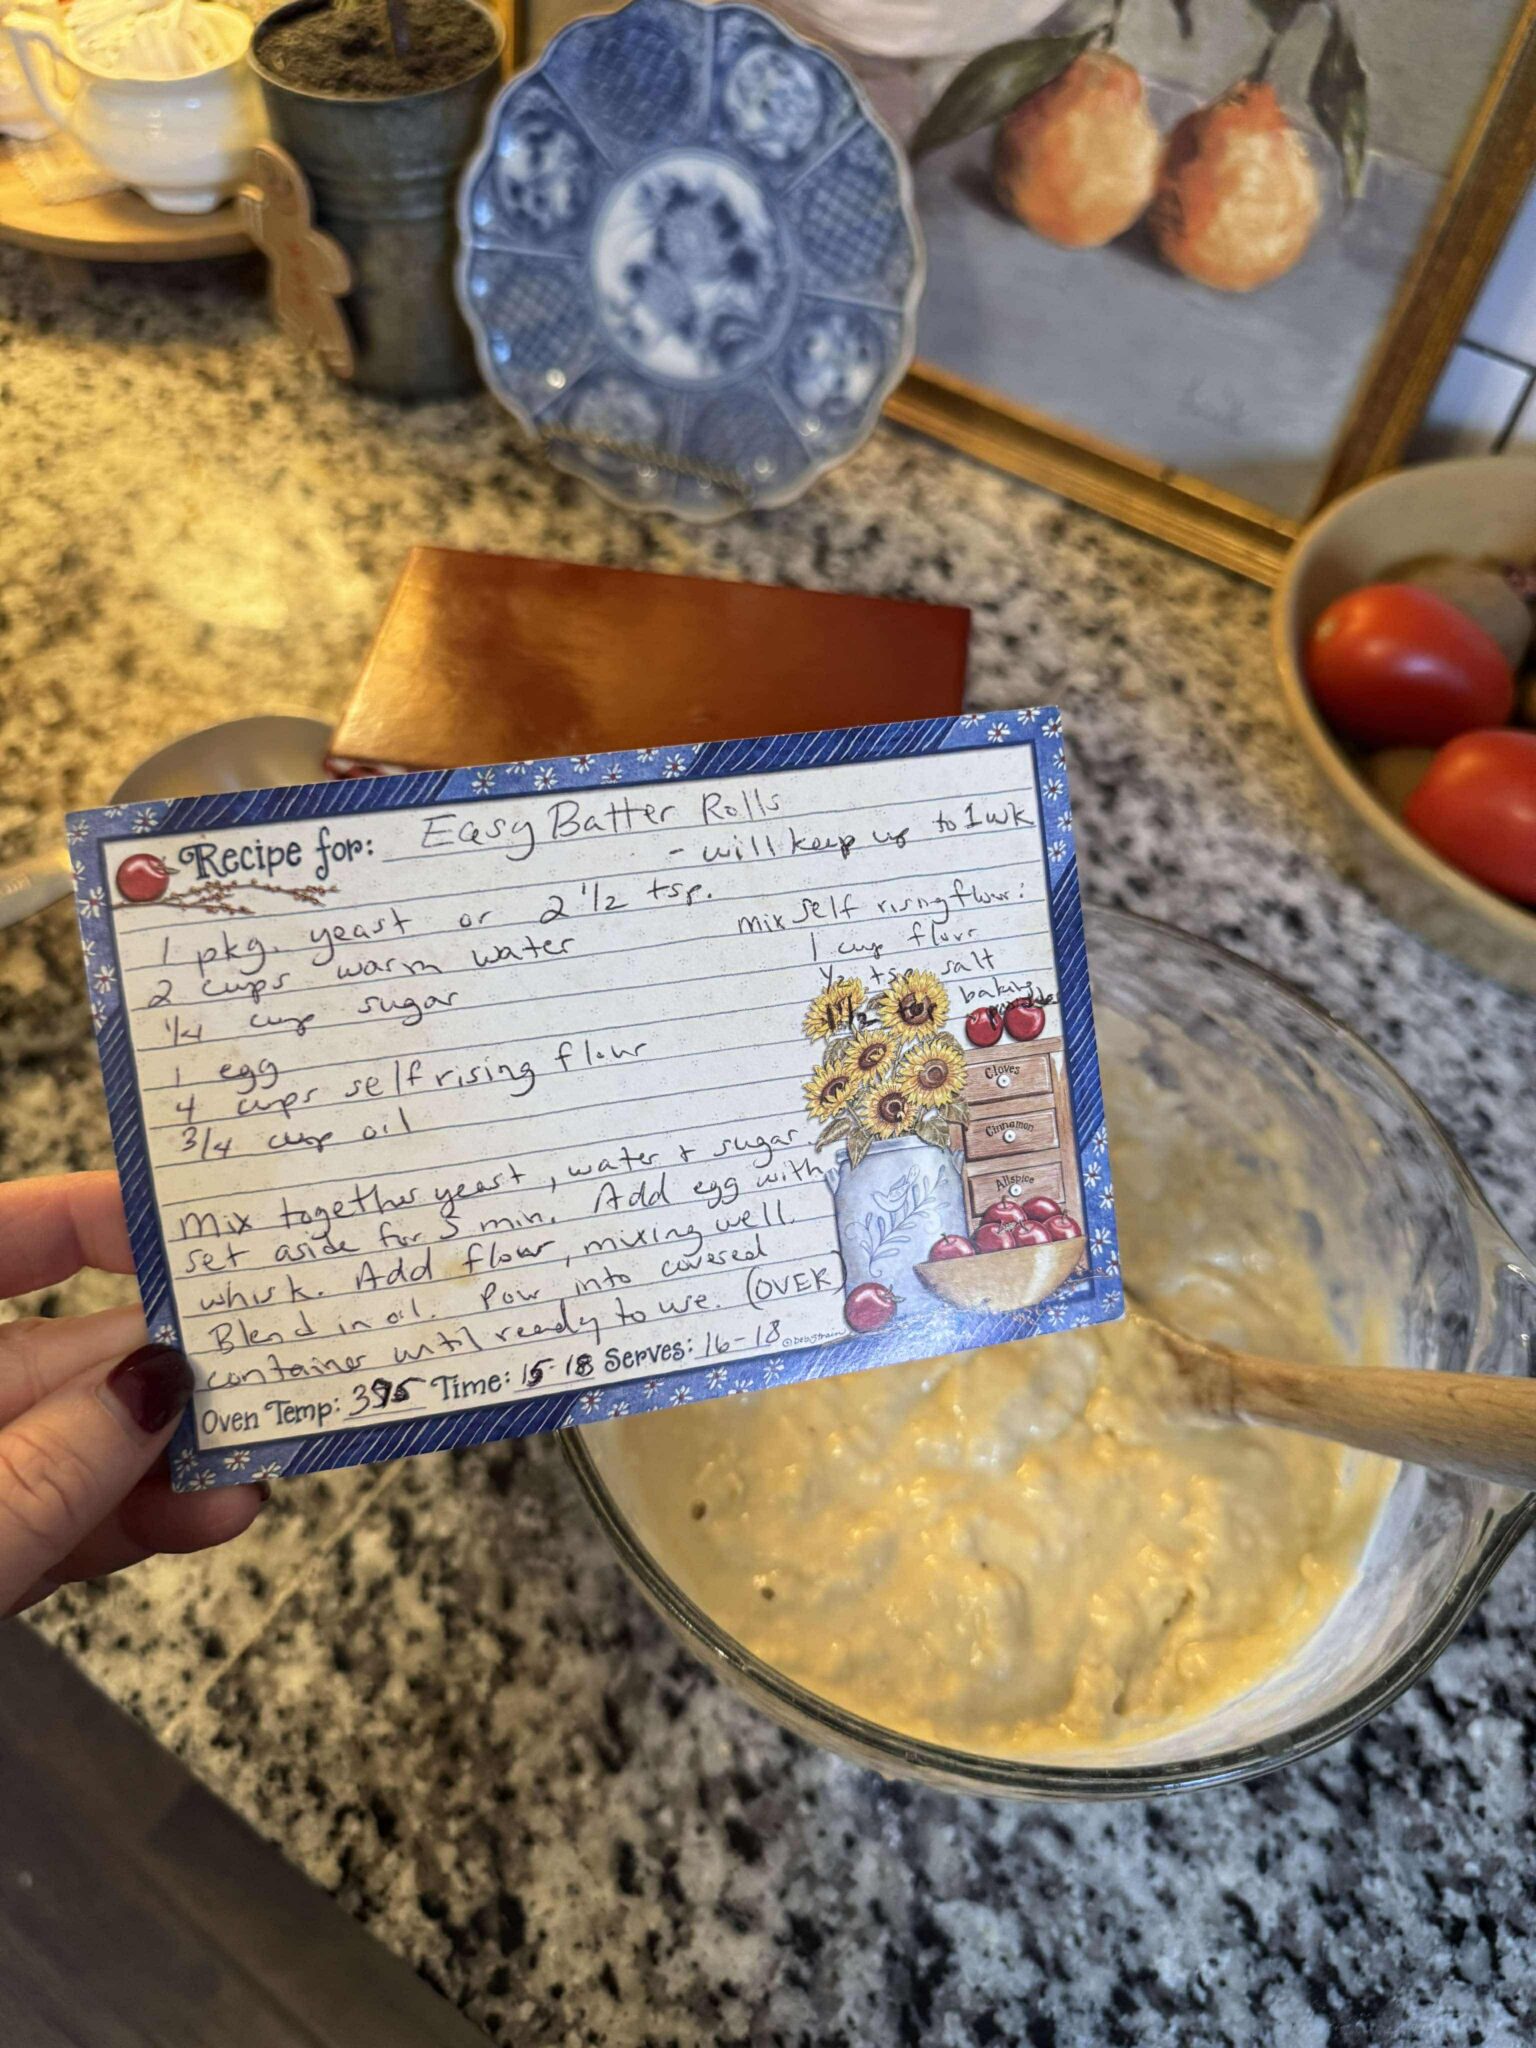 Recipe for: Easy Batter Rolls
- will keep up to 1 wk
1 pkg. yeast or 2 1/2 tsp.
2 cups warm water
1/4 cup sugar
1 egg
4 cups self rising flour
3/4 cup oil
mix self rising flour:
1 cup flour
1/2 tsp salt
1 1/2 tsp baking
powder
Cloves
Cinnamon
Allspice
Mix together yeast, water + sugar.
set aside for 5 min. Add egg with
whisk. Add flour, mixing well.
Blend in oil. Pour into covered
container until ready to use. (OVER)
Oven Temp: 375 Time: 15-18 Serves: 16-18